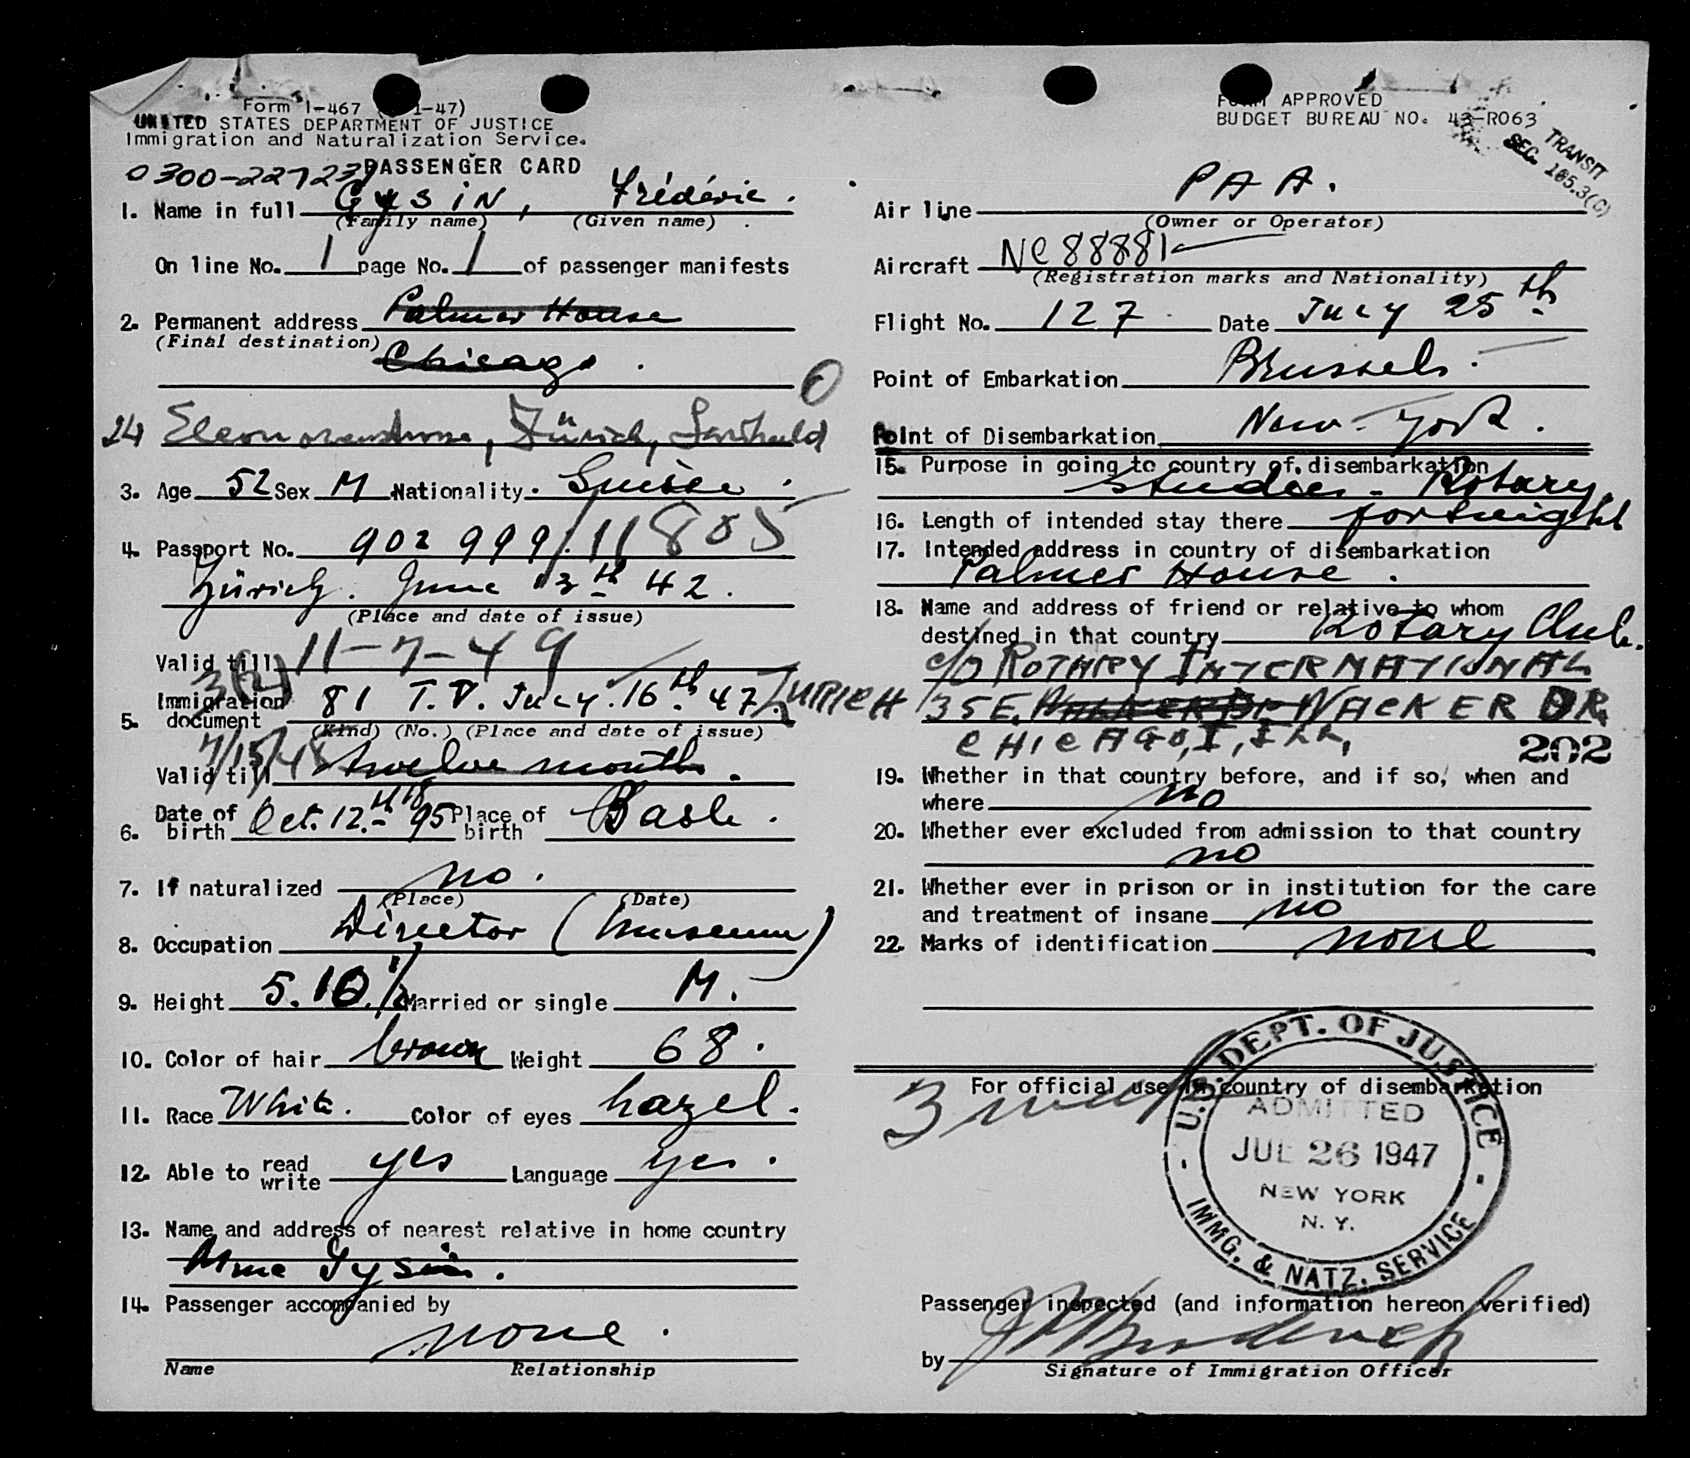 Form I-467 ( -47)
UNITED STATES DEPARTMENT OF JUSTICE
Immigration and Naturalization Service.
0300-22723
PASSENGER CARD
1. Name in full Gysin, Frédéric.
(Family name) (Given name)
On line No. 1 page No. 1 of passenger manifests
2. Permanent address Palmer House
(Final destination)
Chicago.
24 Zürich,
3. Age 52 Sex M Nationality. Suisse.
4. Passport No. 902 999 / 11805
Zürich. June 13th 42.
(Place and date of issue)
Valid till 11-7-49
3(2)
Immigration
5. document 81 T.V. July. 16th 47. ZURICH
(Kind) (No.) (Place and date of issue)
7/15/48
Valid till twelve months.
6. Date of birth Oct. 12.th 95 Place of birth Basle.
7. If naturalized no.
(Place) (Date)
8. Occupation Director (Museum)
9. Height 5.10 1/2 Married or single M.
10. Color of hair brown Weight 68.
11. Race White. Color of eyes hazel.
12. Able to read write yes Language yes.
13. Name and address of nearest relative in home country
Mme Gysin.
14. Passenger accompanied by
none.
Name Relationship
FORM APPROVED
BUDGET BUREAU NO. 43-R063
TRANSIT
SEC. 165.3(C)
Air line PAA.
(Owner or Operator)
Aircraft NC 88881
(Registration marks and Nationality)
Flight No. 127. Date July 25th
Point of Embarkation Brussels.
Point of Disembarkation New-York.
15. Purpose in going to country of disembarkation
studies - Rotary
16. Length of intended stay there fortnight
17. Intended address in country of disembarkation
Palmer House.
18. Name and address of friend or relative to whom
destined in that country Rotary Club.
c/o ROTARY INTERNATIONAL
35 E. WACKER DR.
CHICAGO, I, ILL,
202
19. Whether in that country before, and if so, when and
where no
20. Whether ever excluded from admission to that country
no
21. Whether ever in prison or in institution for the care
and treatment of insane no
22. Marks of identification none
For official use in country of disembarkation
3
U.S. DEPT. OF JUSTICE
ADMITTED
JUL 26 1947
NEW YORK
N. Y.
IMMG. & NATZ. SERVICE
Passenger inspected (and information hereon verified)
by
Signature of Immigration Officer